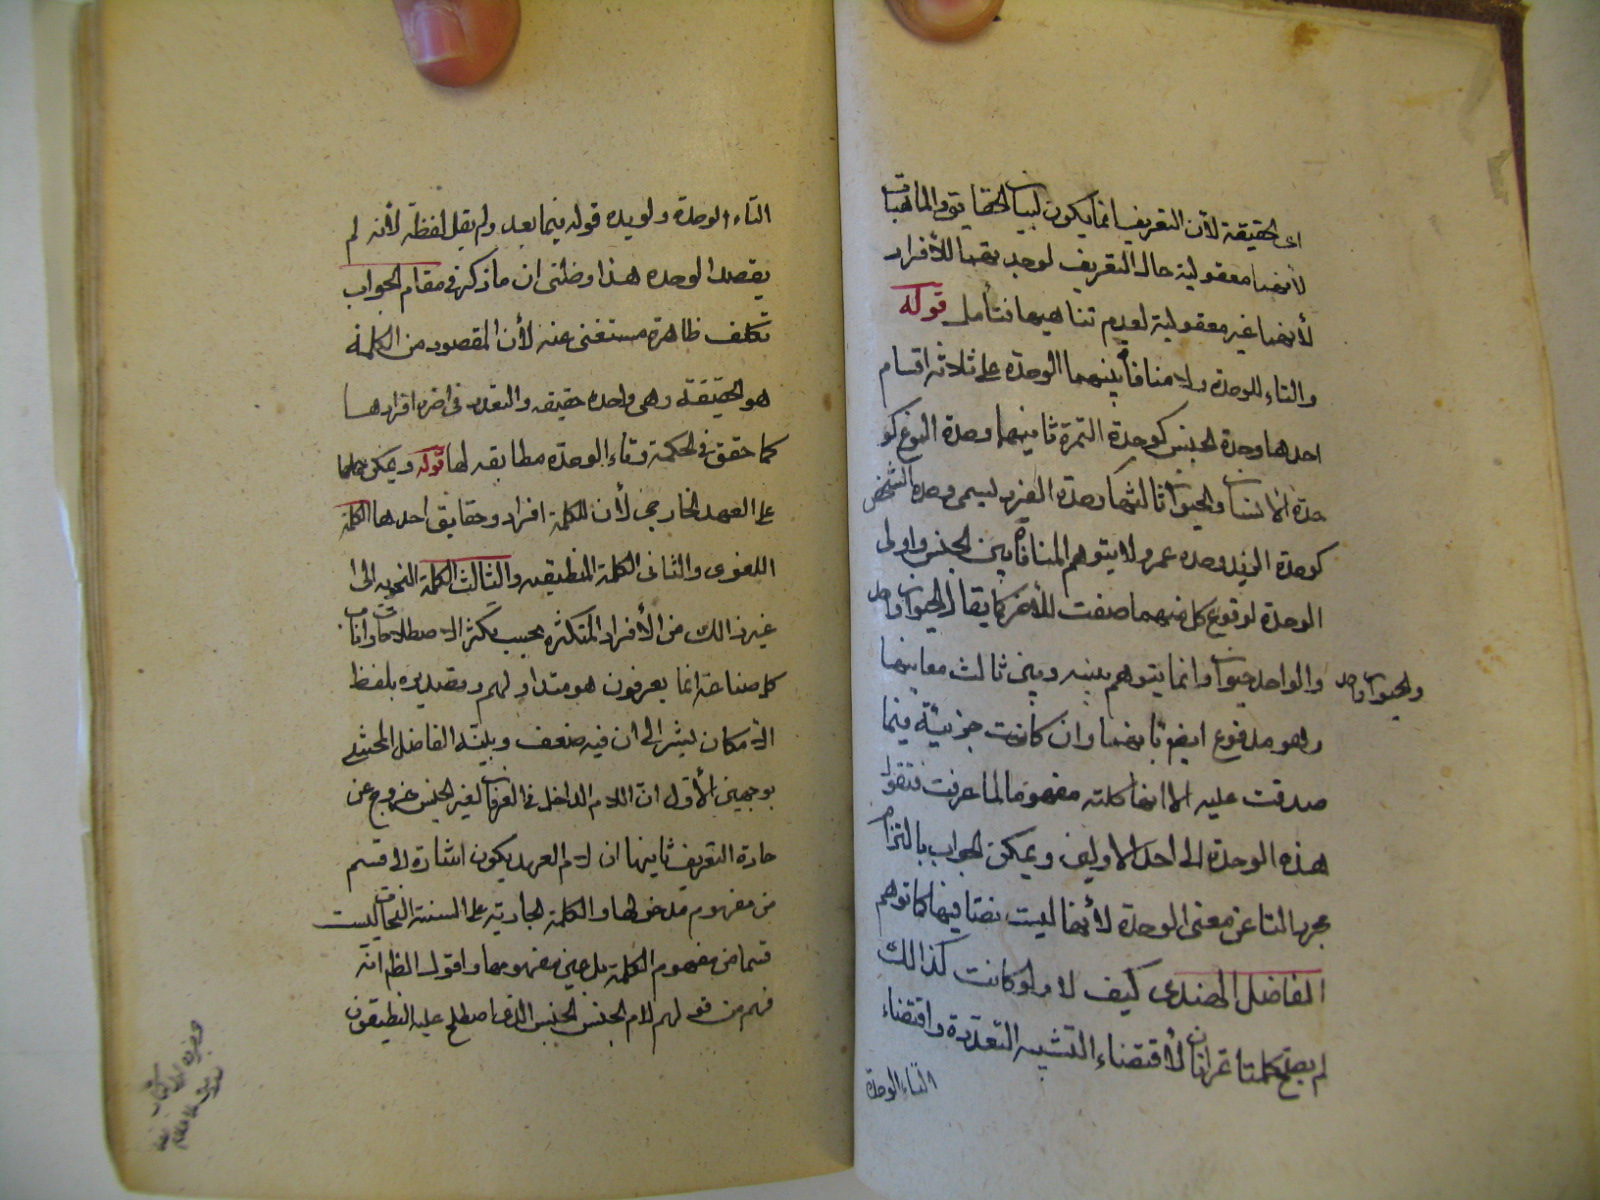 اى الحقيقة لأن التعريف انما يكون لبيان الحقايق والماهيات
لأنها معقولية حال التعريف لوجد بهما للأفراد
لأنها غير معقولية لعدم تناهيها فتأمل قوله
والتاء للوحدة ولا منافاة بينهما الوحدة على ثلاثة اقسام
احدها وحدة الجنس كوحدة التمرة ثانيها وحدة النوع كو
حدة الانسان والحيوان ثالثها وحدة الفرد ليسمى وحدة الشخص
كوحدة الزيد وحده عمرو لا يتوهم المنافاة بين الجنس واولى
الوحدة لوقوع كل منهما صفت للأخر كما يقال الحيوان واحد
والواحد حيوان وانما يتوهم بينه وبين ثالث معانيها
والحيوان واحد
وهو مدفوع ايضا بأنها وان كانت جزئية فيما
صدقت عليه الا انها كلية مفهوما لما عرفت فتقول
هذه الوحدة الى احد الاولين ويمكن الجواب بالتزام
تجرد التا عن معنى الوحدة لأنها ليت نصا فيها كما توهم
الفاضل الهندى كيف لا ولو كانت كذالك
لم يصح كلمتان تمرتان لأقتضاء التثنيه التعددة واقتضاء
التاء الوحدة
التاء الوحدة ولويده قوله فيما بعد ولم يقل لفظة لأنه لم
يقصد الوحده هذا وظنى ان ما ذكر فى مقام الجواب
تكلف ظاهرة مستغنى عنه لأن المقصود من الكلمة
هو الحقيقة وهى واحده حقيقه والتعدد فى افرادها
كما حقق فى الحكمة وتاء الوحدة مطابقه لها قوله ويمكن حملها
على العهد الخارجى لأن للكلمة افراد وحقايق احدها الكلمة
اللغوى والثانى الكلمة المنطيقيه والثالث الكلمة النحويه الى
غير ذالك من الأفراد المتكثره بحسب تكثر الاصطلاحات وارباب
كل صناعة انما يعرفون هو متداولهم وتصديره بلفظ
الامكان يشير الى ان فيه ضعف وبينه الفاضل المحشى
بوجهين الأول ان اللام الداخل فى المعرفات لغير الجنس خروج عن
جادة التعريف ثانيها ان لام العهد يكون اشارة الى قسم
من مفهوم مدخولها والكلمة الجارية على السنة النحات ليست
قسما من مفهوم الكلمة بل عين مفهومها واقول الظ انه
فهم من قولهم لام الجنس الجنس الذى اصطلح عليه المنطيقون